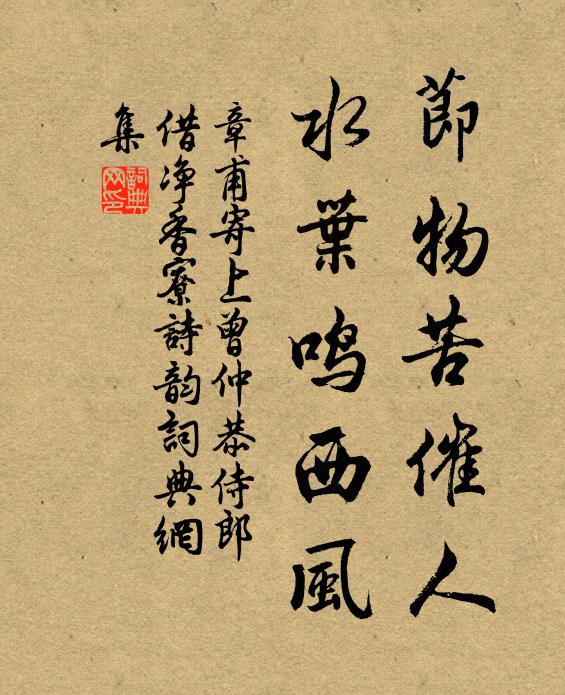 節物苦催人
水葉鳴西風
章甫寄上曾仲恭侍郎
借净香寮詩韵詞典網
集
詞典网印